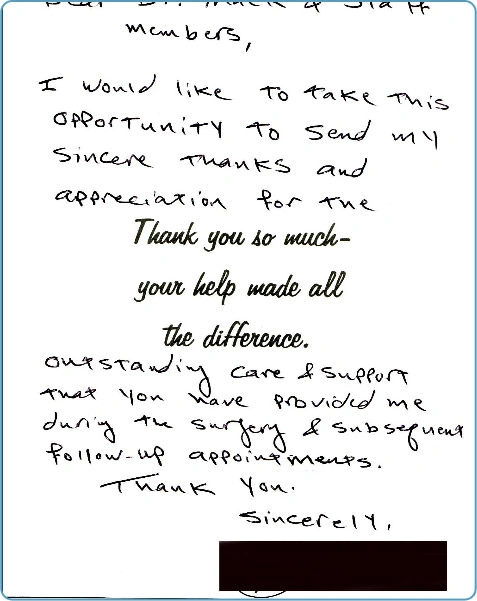 Dear Dr. Mack & Staff
members,
I would like to take this
opportunity to send my
sincere thanks and
appreciation for the
Thank you so much-
your help made all
the difference.
outstanding care & support
that you have provided me
during the surgery & subsequent
follow-up appointments.
Thank you.
Sincerely,